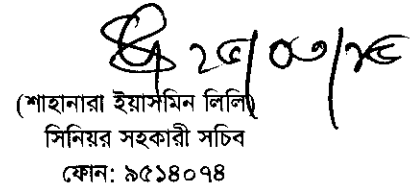 (শাহানারা ইয়াসমিন লিলি)
সিনিয়র সহকারী সচিব
ফোন: ৯৫১৪০৭৪